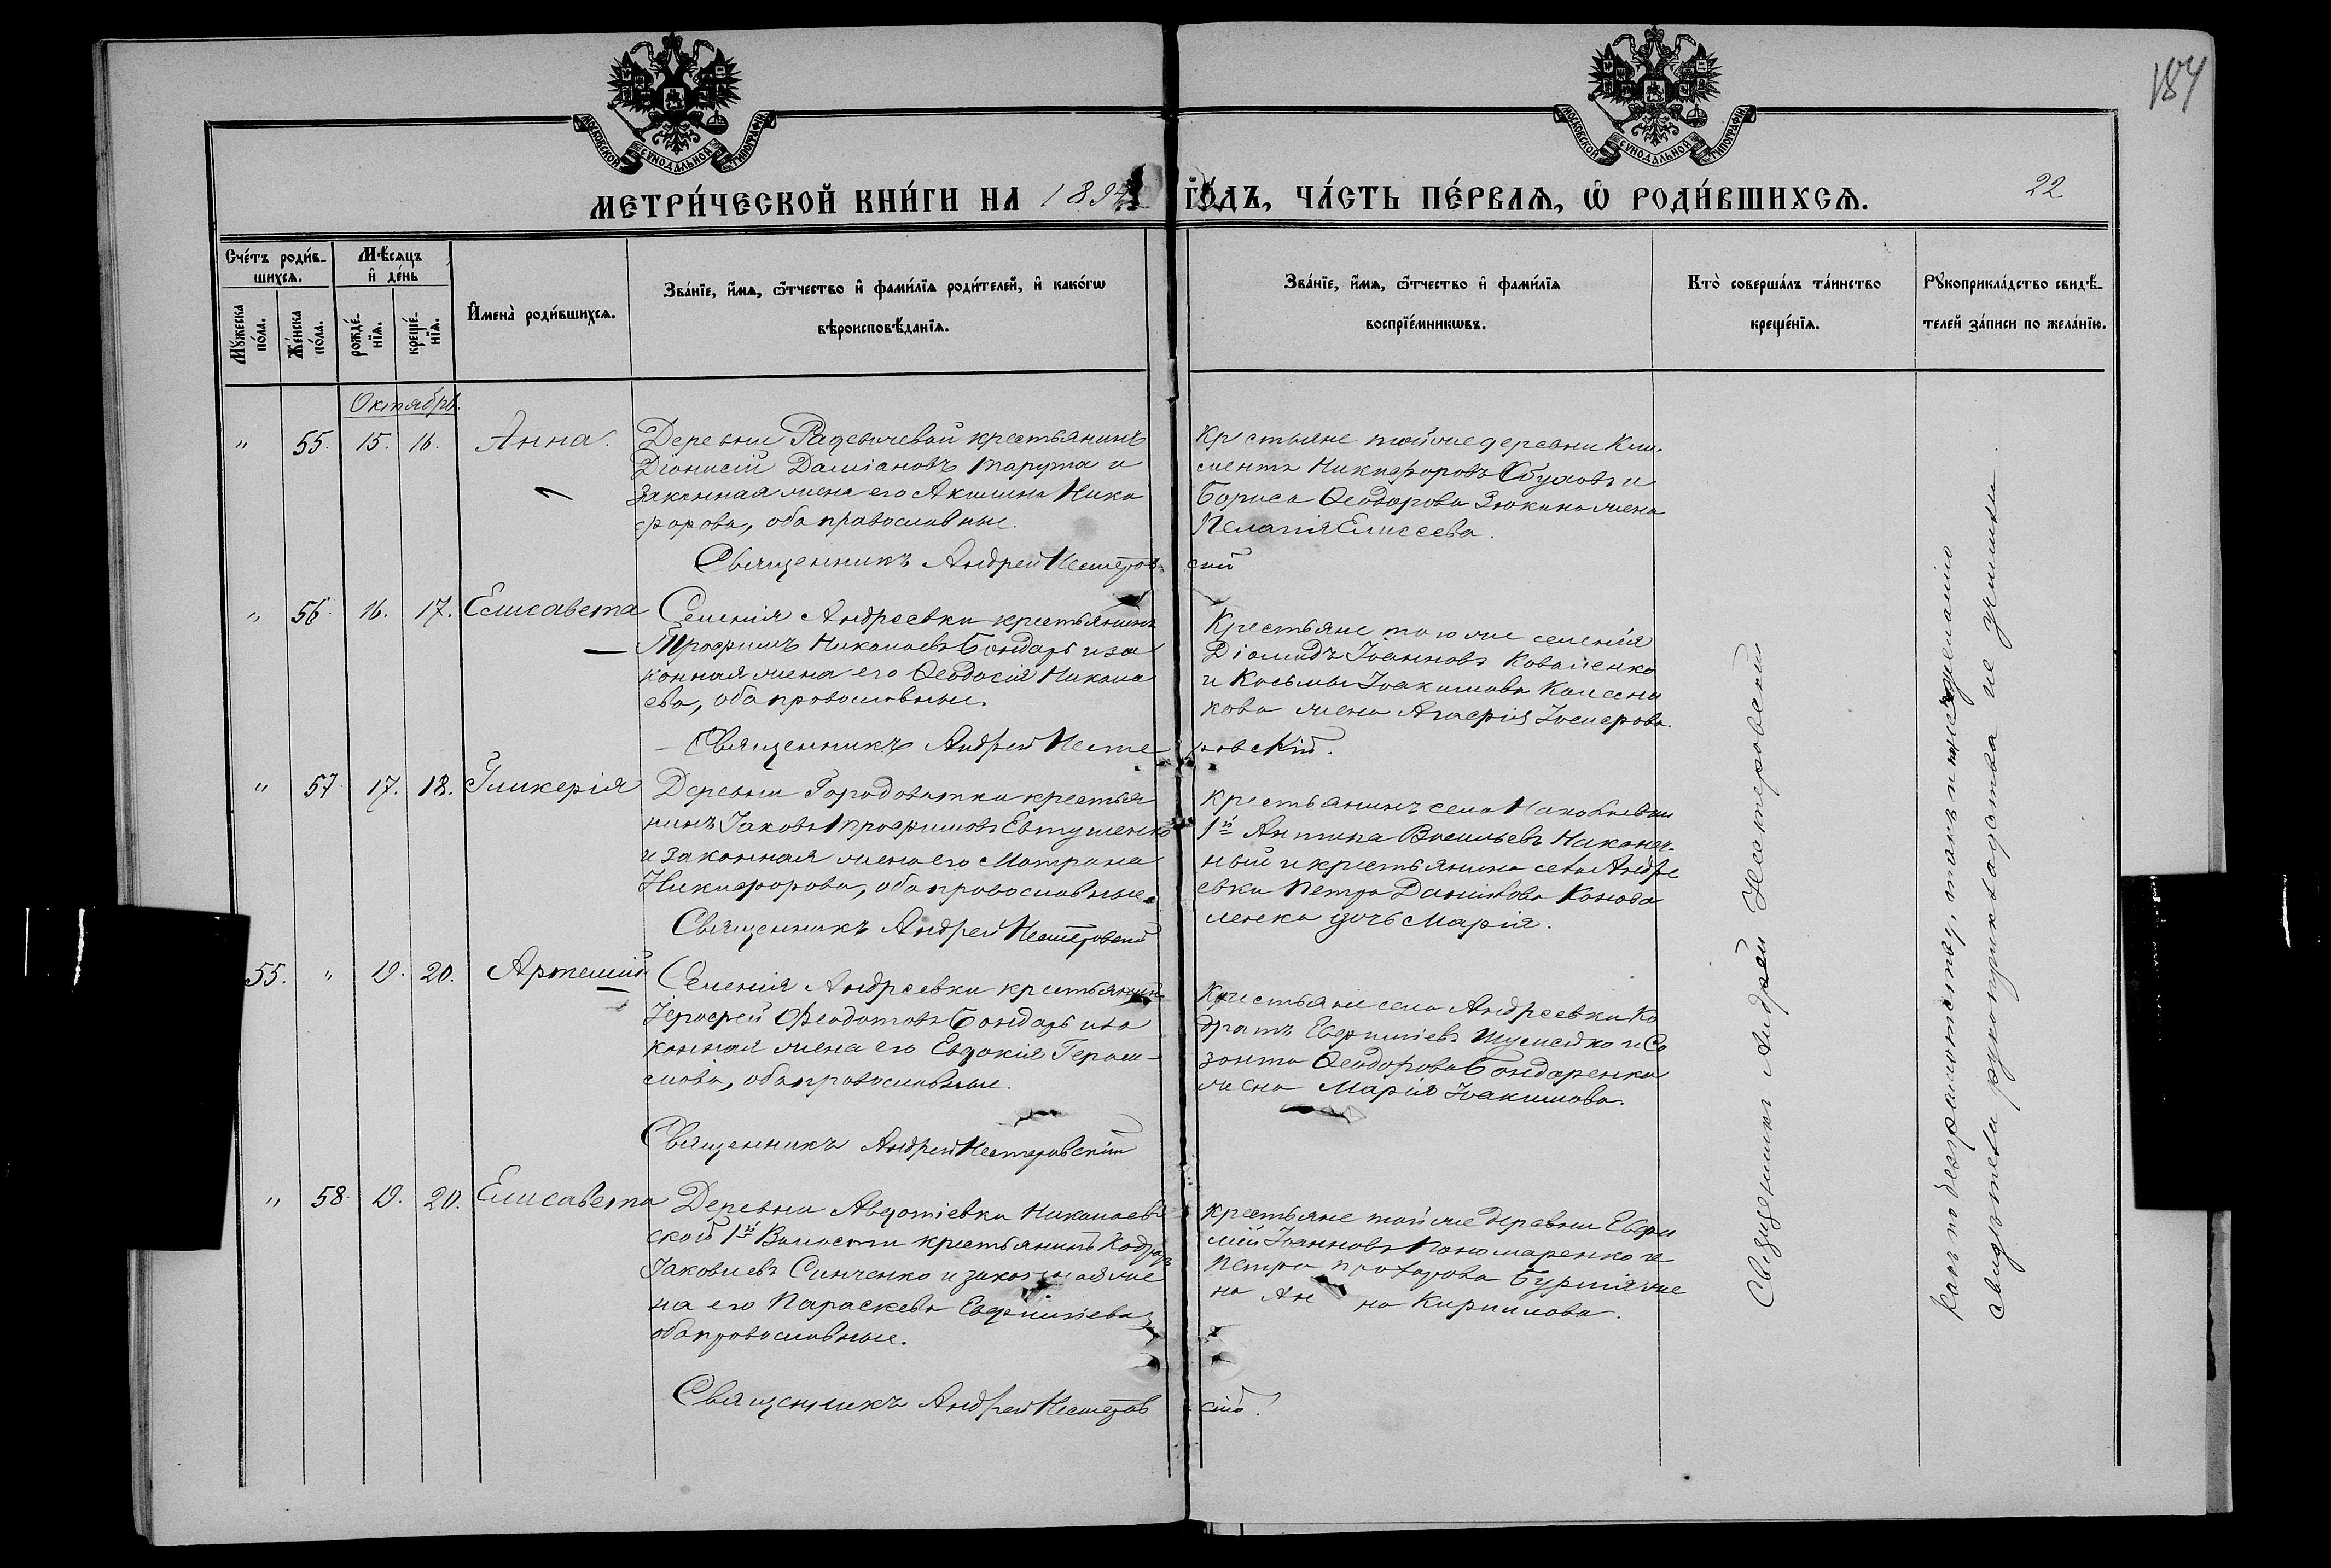 184
МОСКОВСКОЙ СУНОДАЛЬНОЙ ТИПОГРАФІИ
МОСКОВСКОЙ СУНОДАЛЬНОЙ ТИПОГРАФІИ
МЕТРИ́ЧЕСКОЙ КНИ́ГИ НА 189 ГО́ДЪ, ЧА́СТЬ ПЕ́РВАѦ, Ѡ҆ РОДИ́ВШИХСѦ.
22
Сче́тъ роди́в-
шихсѧ.
Мꙋ́жеска по́ла.
Же́нска по́ла.
Мѣ́сѧцъ
и҆ де́нь
рожде́-нїѧ.
креще́-нїѧ.
И҆мена̀ роди́вшихсѧ.
Зва́нїе, и҆́мѧ, ѻ҆́тчество и҆ фами́лїѧ роди́телей, и҆ како́гѡ
вѣроисповѣ́данїѧ.
Зва́нїе, и҆́мѧ, ѻ҆́тчество и҆ фами́лїѧ
воспрїе́мникѡвъ.
Кто̀ соверша́лъ та́инство
креще́нїѧ.
Рꙋкоприкла́дство свидѣ́-
телей за́писи по жела́нїю.
Октябрь.
" 55. 15. 16. Анна.
Деревни Радевичевой крестьянинъ
Діонисій Даміановъ Тарута и
законная жена его Акилина Ники
форова, оба православные.
Священникъ Андрей Нестеров-
скій
Крестьяне тойже деревни Кли-
ментъ Никифоровъ Обуховъ и
Бориса Ѳеодорова Зюкина жена
Пелагія Елисеева.
" 56. 16. 17. Елисавета
Селенія Андреевки крестьянинъ
Трофимъ Николаевъ Бондарь и за
конная жена его Ѳеодосія Никола
ева, оба православные.
Священникъ Андрей Несте
ровскій.
Крестьяне того же селенія
Діомидъ Іоанновъ Коваленко
и Косьмы Іоакимова Колесни
кова жена Агафія Іосифова.
" 57. 17. 18. Гликерія
Деревни Городоватки крестья
нинъ Іаковъ Трофимовъ Евтушенко
и законная жена его Матрона
Никифорова, оба православные.
Священникъ Андрей Нестеровскій
Крестьянинъ села Николаевки
1й Антипа Васильевъ Наконеч-
ный и крестьянина села Андре
евки Петра Данилова Конова
ленка дочь Марія.
55. " 19. 20. Артемій
Селенія Андреевки крестьянинъ
Іерофей Ѳеодотовъ Бондарь и за
конная жена его Евдокія Гераси-
мова, оба православные.
Священникъ Андрей Нестеровскій
Крестьяне села Андреевки Ко
дратъ Евфиміевъ и Со
зонта Ѳеодорова Бондаренка
жена Марія Іоакимова.
" 58. 19. 20. Елисавета
Деревни Авдотіевки Николаев
ской 1й Волости крестьянинъ Кодратъ
Іаковлевъ Синченко и законная же
на его Параскева Евфиміева,
оба православные.
Священникъ Андрей Нестеров
скій.
Крестьяне тойже деревни Евфи
мій Іоанновъ Пономаренко и
Петра же
на Анна Кириллова.
Священникъ Андрей Нестеровскій
Какъ по безграмотству, такъ и
свидѣтели рукоприкладства не учинили.